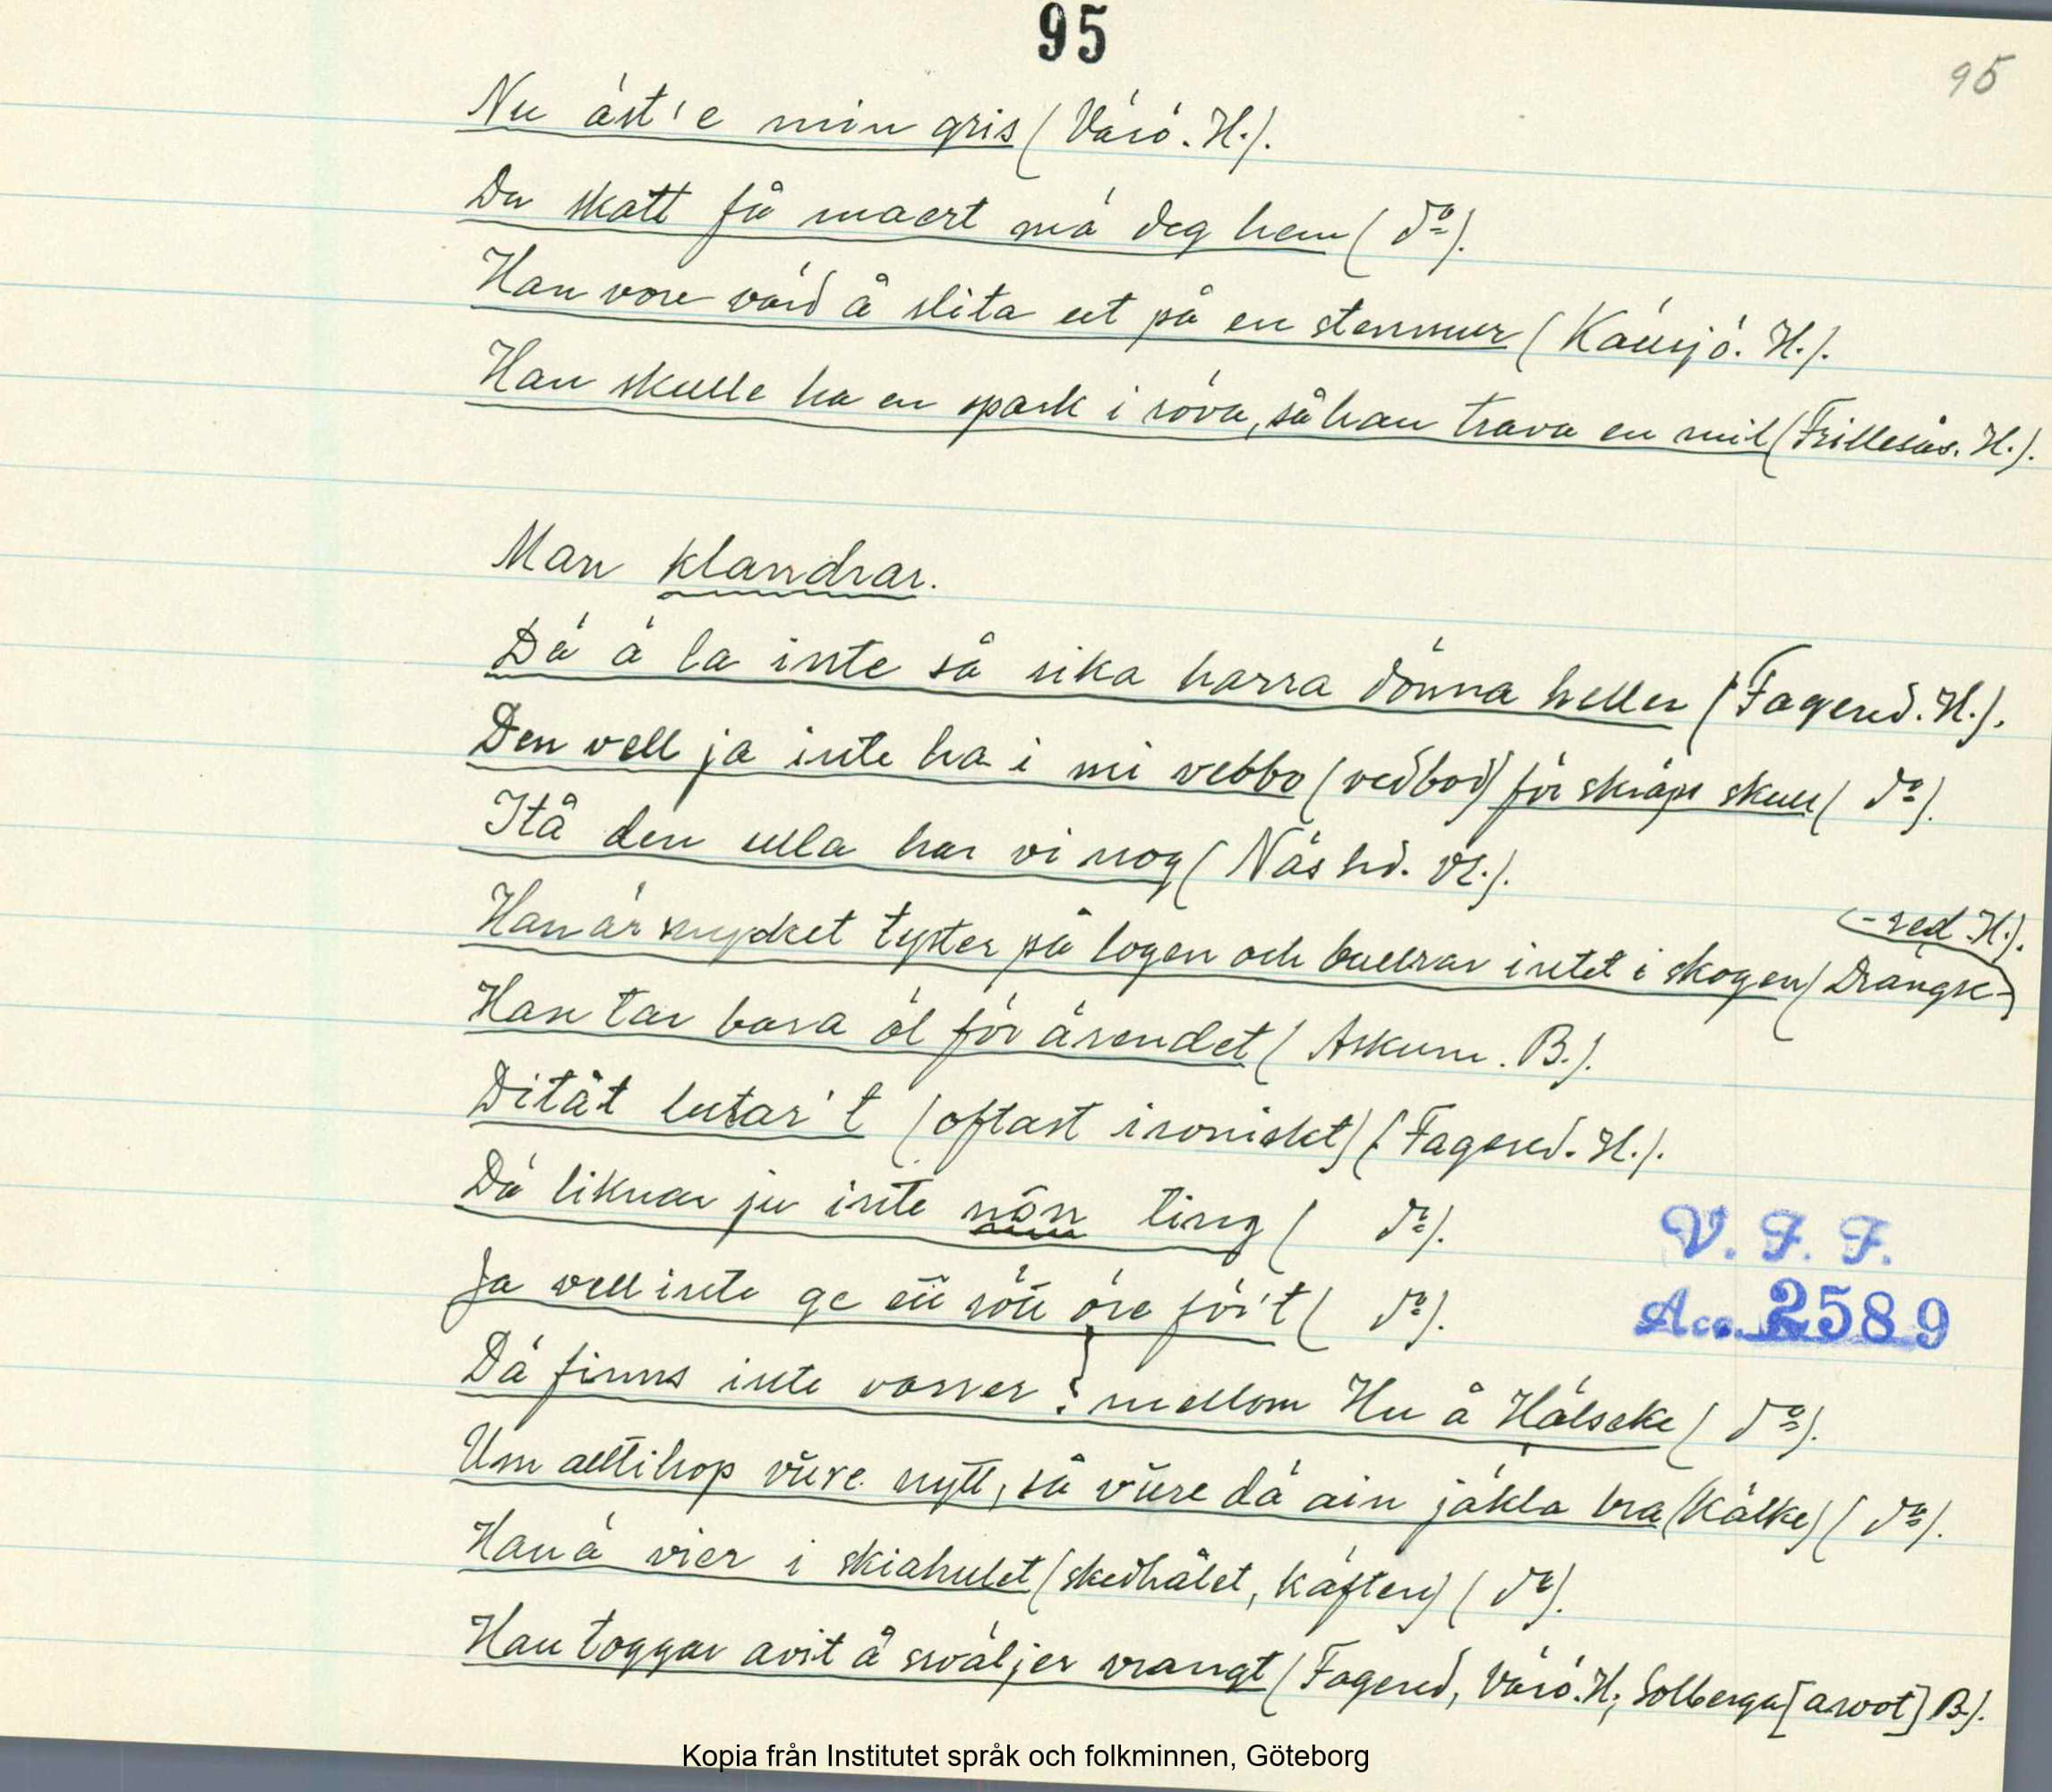 95
95
Nu äst'e min gris (Värö. H.).
Du skatt få maert mä deg hem (d:o).
Han vore värd å slita ut på en stenmur (Källsjö. H.).
Han skulle ha en spark i röva, så han trava en mil (Frillesås. H.).
Man klandrar.
Dä ä la inte så rika harra dönna heller (Fagered. H.).
Den vell ja inte ha i mi vebbo (vedbod) för skräps skull (d:o).
Itå den ulla har vi nog (Näs hd. Vl.).
Han är mycket tyster på logen och bullrar intet i skogen (Drängse-
-red H.).
Han tar bara öl för ärendet (Askum. B.).
Ditåt lutar't (oftast ironiskt) (Fagered. H.).
Dä liknar ju inte nôn ting (d:o).
Ja vell inte ge ett rött öre för't (d:o).
Dä finns inte varrer mellom Hu å Hälseke (d:o).
Um alltihop vure nytt, så vure dä ain jäkla bra (kälke) (d:o).
Han ä vier i skiahulet (skedhålet, käften) (d:o).
Han toggar avit å sväljer vrangt (Fagered, Värö. H; Solberga [arvot] B.).
V. F. F.
Acc. 2589
Kopia från Institutet språk och folkminnen, Göteborg